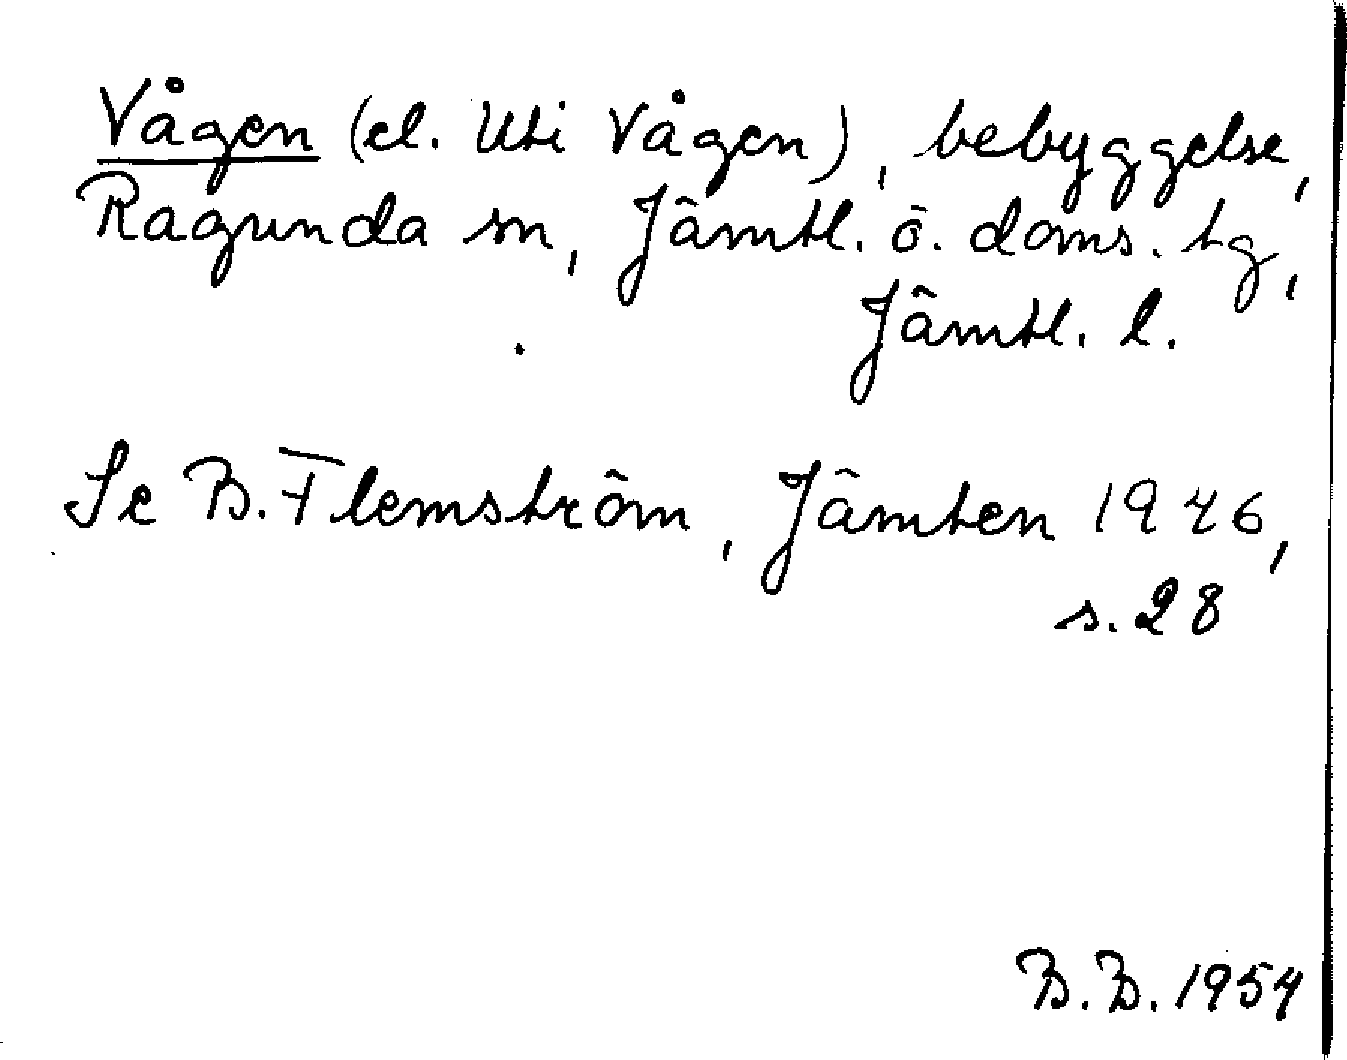 Vågen (el. Uti Vågen), bebyggelse,
Ragunda sn, Jämtl. ö. doms. tg,
Jämtl. l.
Se B. Flemström, Jämten 1946,
s. 28
B.B. 1954